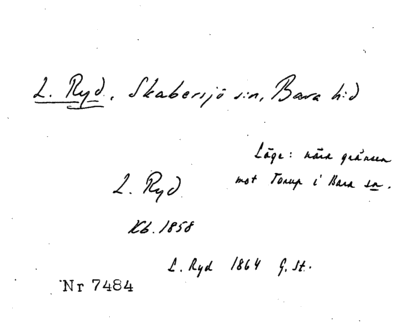 L. Ryd, Skabersjö s:n, Bara h:d
Läge: nära gränsen
mot Torup i Bara sn.
L. Ryd
Kb. 1858
L. Ryd 1864 G. St.
Nr 7484